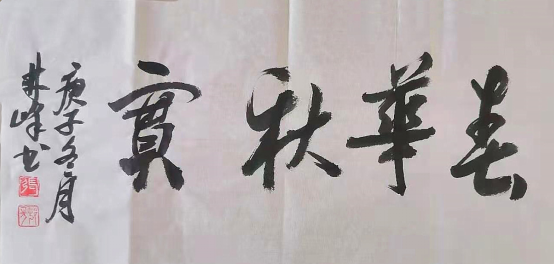 春華秋實
庚子冬月
井峰书